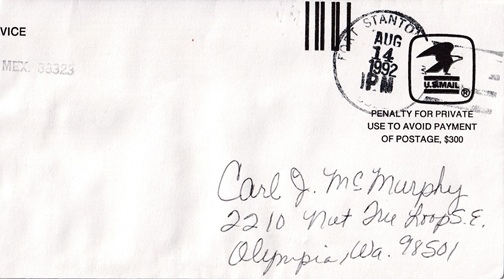 VICE
MEX. 88323
FORT STANTON
AUG
14
1992
PM
U.S.MAIL
®
PENALTY FOR PRIVATE
USE TO AVOID PAYMENT
OF POSTAGE, $300
Carl J. McMurphy
2210 Nut Tree Loop S.E.
Olympia, Wa. 98501